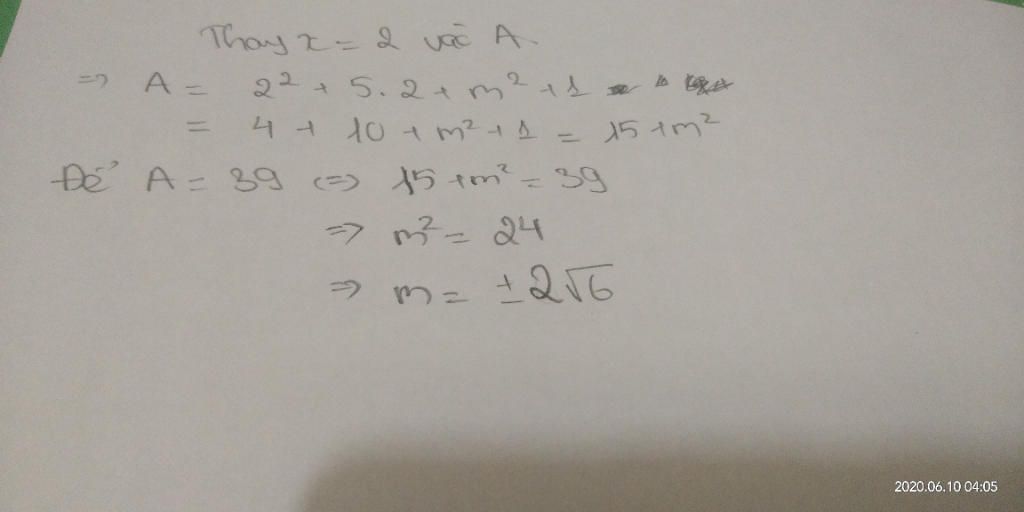 Thay x = 2 vào A.
=> A = 2² + 5.2 + m² + 1
= 4 + 10 + m² + 1 = 15 + m²
Để A = 39 <=> 15 + m² = 39
=> m² = 24
=> m = ±2√6
2020.06.10 04:05